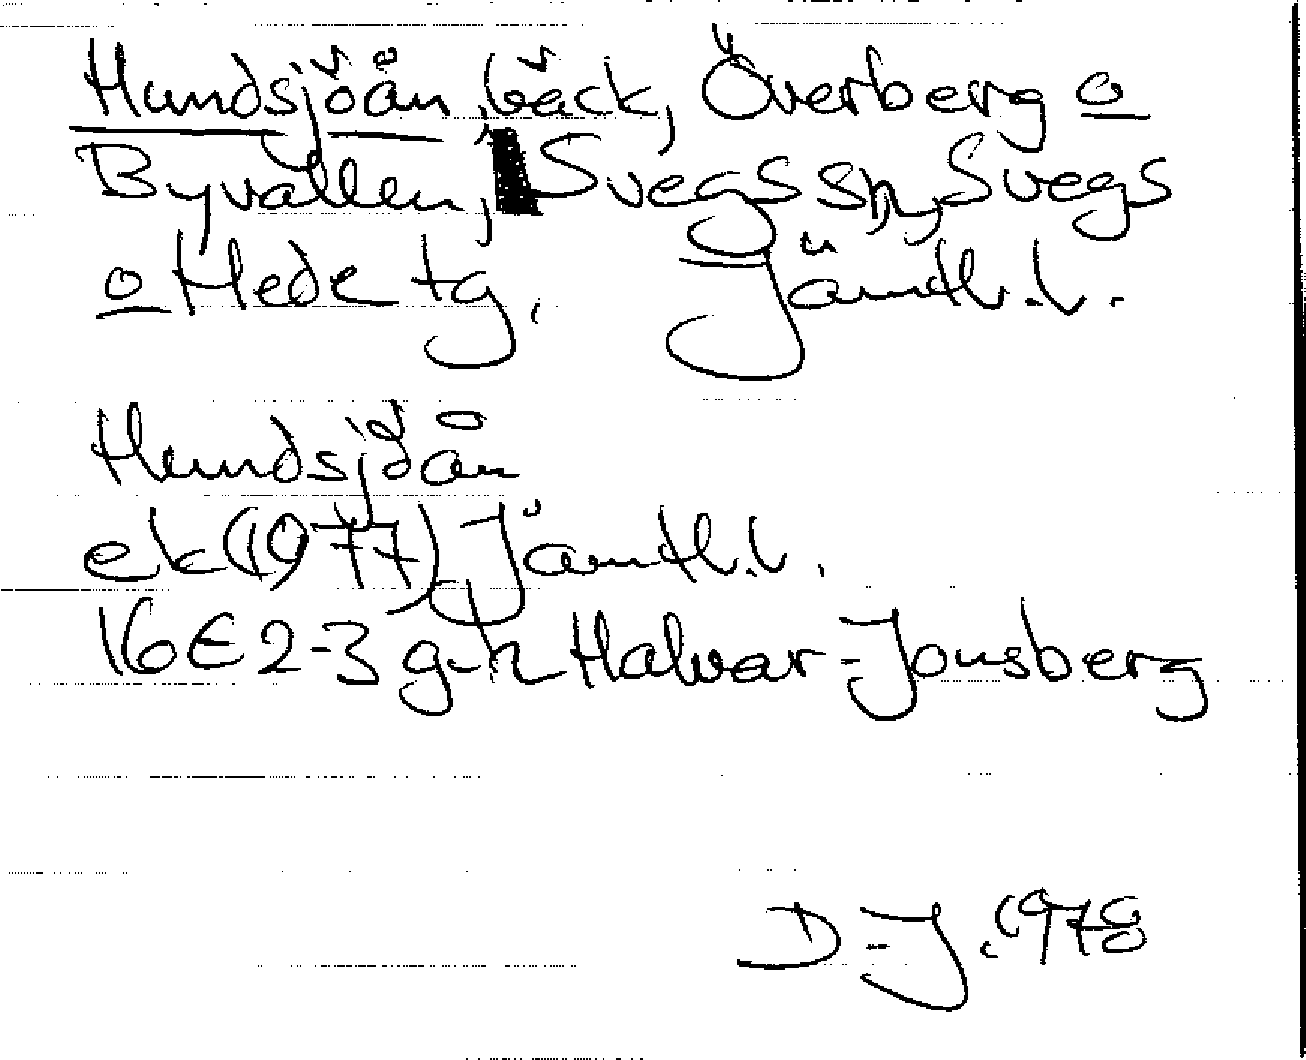 Hundsjöån, bäck, Överberg o
Byvallen, Svegs sn, Svegs
o Hede tg. Jämtl.l.
Hundsjöån
ek (1977) Jämtl.l.
16E2-3 g-h Halvar-Jonsberg
D-J. 1978